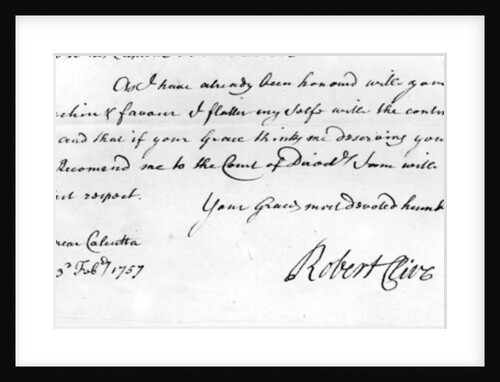 As I have already been honourd with your
& favour I flatter my Selfe with the contin
and that if your Grace thinks me deserving you
Recomend me to the Court of Direct.rs I am with
respect.
Your Graces most devoted humb
near Calcutta
3.d Feb.ry 1757
Robert Clive